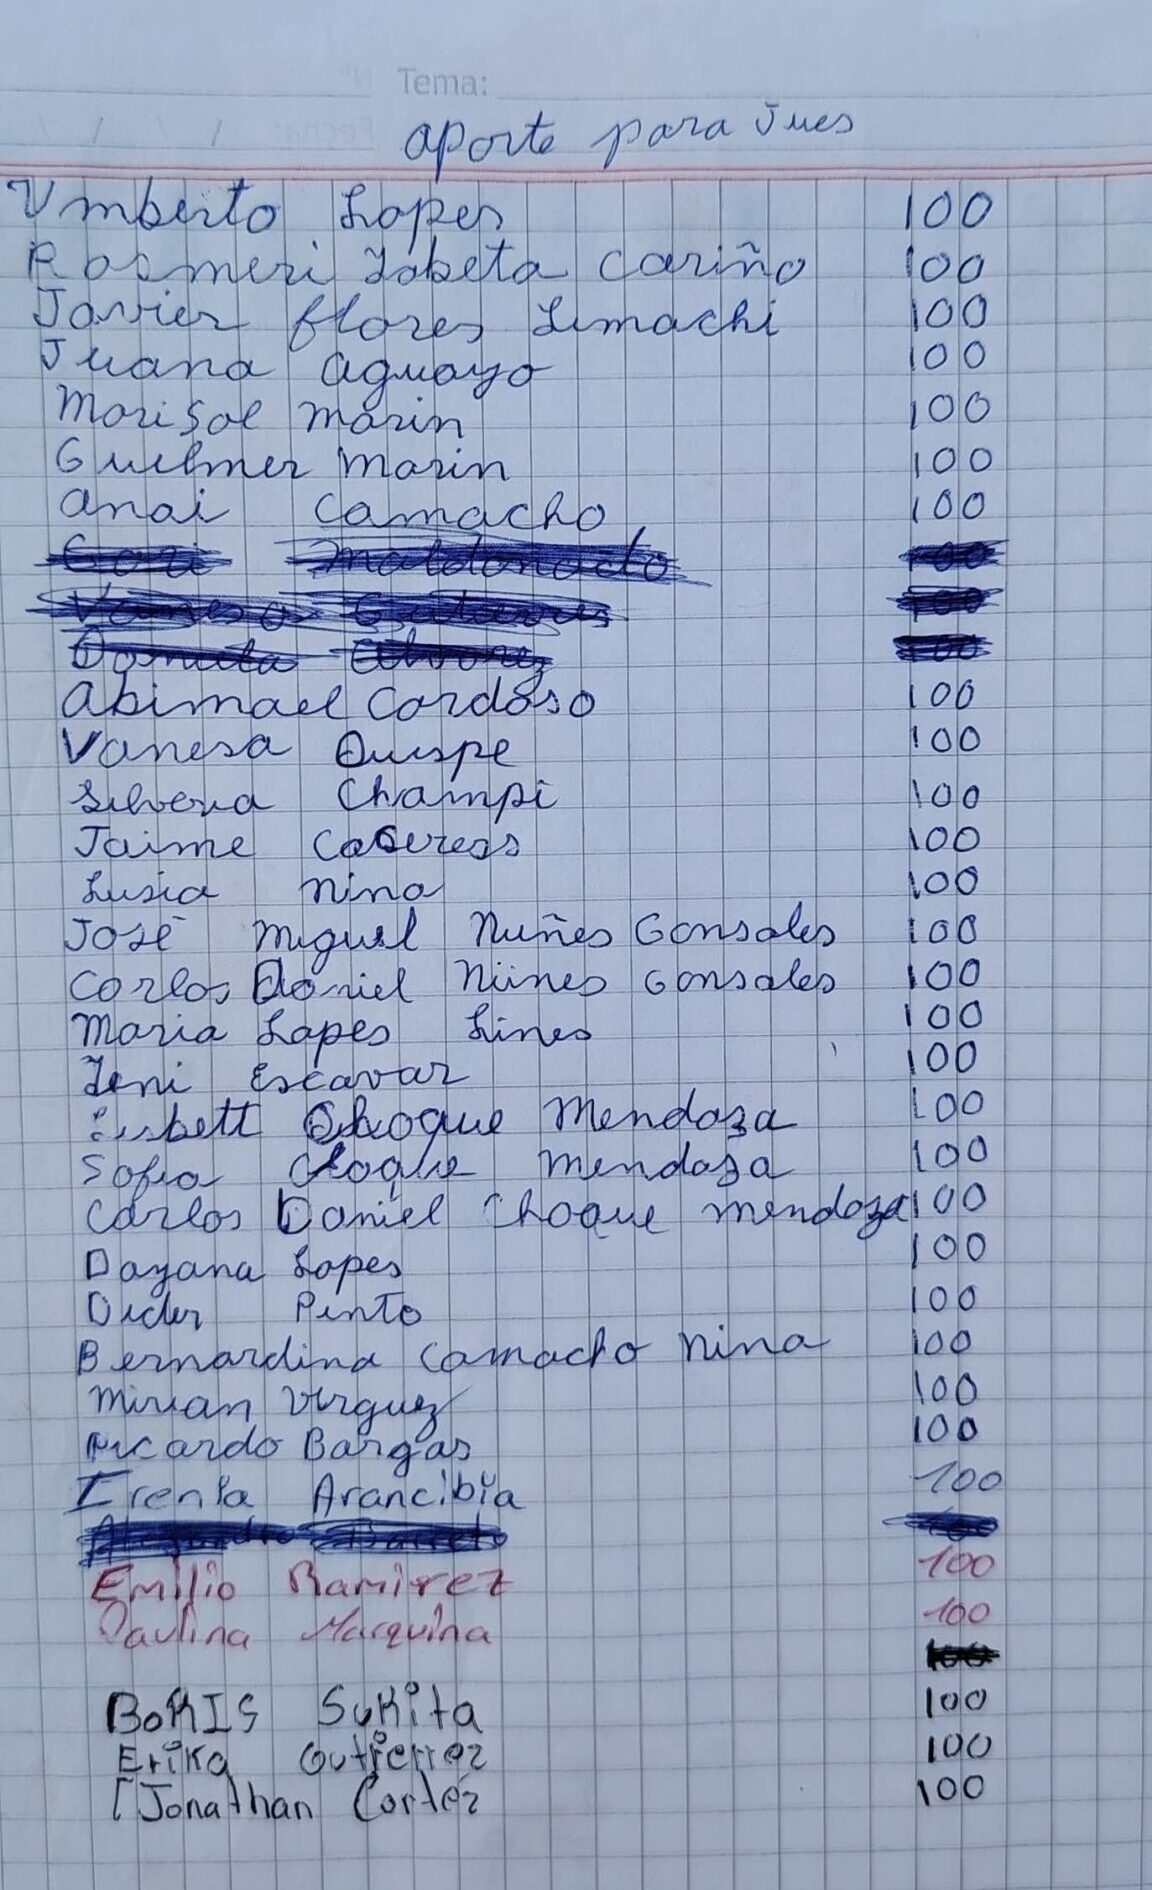 Tema:
Fecha:
aporte para Jues
Umberto Lopes 100
Rosmeri Zobeta Cariño 100
Javier flores Limachi 100
Juana aguayo 100
Marisol Marin 100
Guelmer Marin 100
anai Camacho 100
Maldonado 100
Vanesa 100
100
Abimael Cardoso 100
Vanesa Quispe 100
Silveria Champi 100
Jaime Caseress 100
Lusia Nina 100
José Miguel Nuñes Gonsales 100
Carlos Daniel Nunes Gonsales 100
Maria Lopes Lines 100
Jeni Escavar 100
Lisbett Choque Mendoza 100
Sofia Choque Mendoza 100
Carlos Daniel Choque Mendoza 100
Dayana Lopes 100
Dider Pinto 100
Bernardina Camacho Nina 100
Mirian Virguez 100
Ricardo Bargas 100
Irenia Arancibia 100
Barreto
Emilio Ramirez 100
Paulina Marquina 100
100
BoRIS Sukita 100
Erika Gutierrez 100
Jonathan Cortéz 100